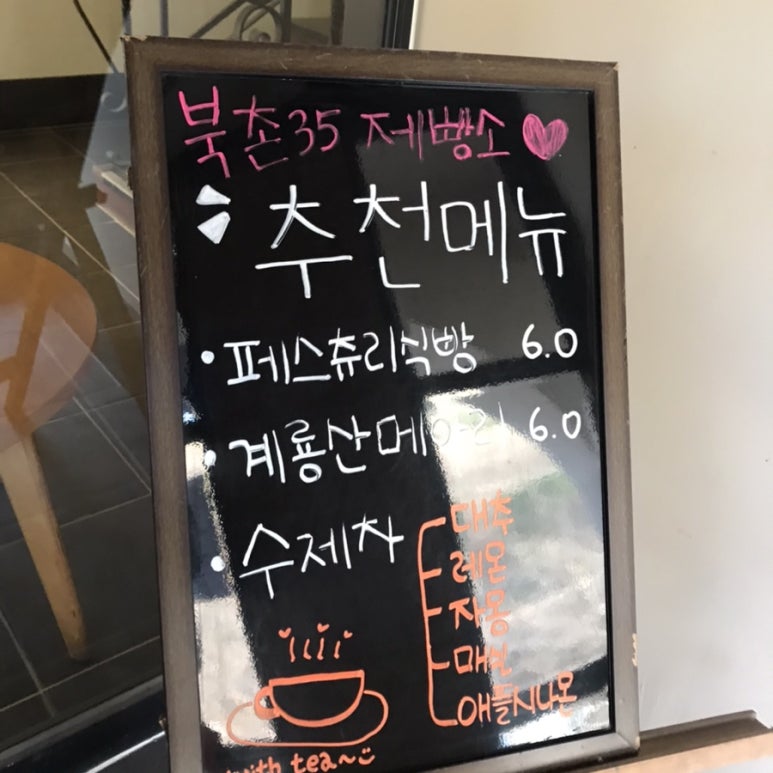 북촌35 제빵소
추천메뉴
페스츄리식빵 6.0
계룡산메아리 6.0
수제차
대추
레몬
자몽
매실
애플시나몬
with tea~